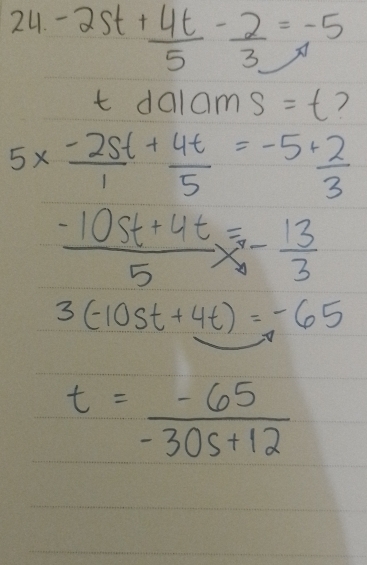 24. -2st + 4t/5 - 2/3 = -5
t dalam s = t?
5 x -2st/1 + 4t/5 = -5 + 2/3
-10st + 4t/5 = - 13/3
3(-10st + 4t) = -65
t = -65/-30s+12